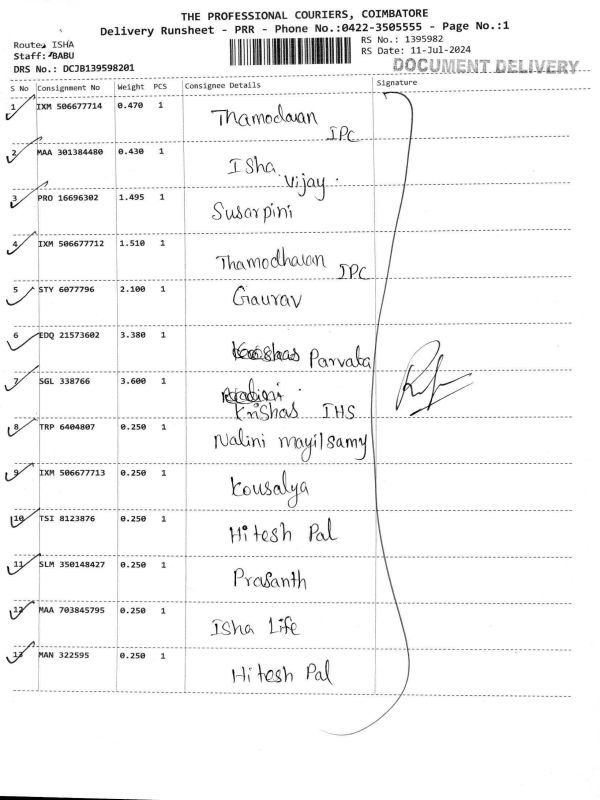 THE PROFESSIONAL COURIERS, COIMBATORE
Delivery Runsheet - PRR - Phone No.:0422-3505555 - Page No.:1
Route: ISHA
RS No.: 1395982
Staff: BABU
RS Date: 11-Jul-2024
DRS No.: DCJB139598201
DOCUMENT DELIVERY
S No Consignment No Weight PCS Consignee Details Signature
1 IXM 506677714 0.470 1 Thamodaran IPC
2 MAA 301384480 0.430 1 Isha Vijay
3 PRO 16696302 1.495 1 Susarpini
4 IXM 506677712 1.510 1 Thamodharan IPC
5 STY 6077796 2.100 1 Gaurav
6 EDQ 21573602 3.380 1 Parvata
7 SGL 338766 3.600 1 Krishas IHS
8 TRP 6404807 0.250 1 Nalini mayilsamy
9 IXM 506677713 0.250 1 Kousalya
10 TSI 8123876 0.250 1 Hitesh Pal
11 SLM 350148427 0.250 1 Prasanth
12 MAA 703845795 0.250 1 Isha Life
13 MAN 322595 0.250 1 Hitesh Pal